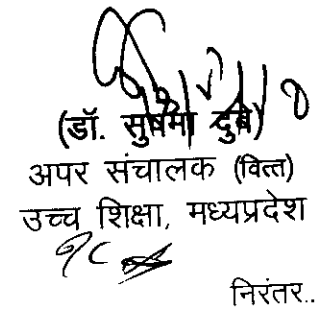 (डॉ. सुषमा दुबे)
अपर संचालक (वित्त)
उच्च शिक्षा, मध्यप्रदेश
निरंतर..